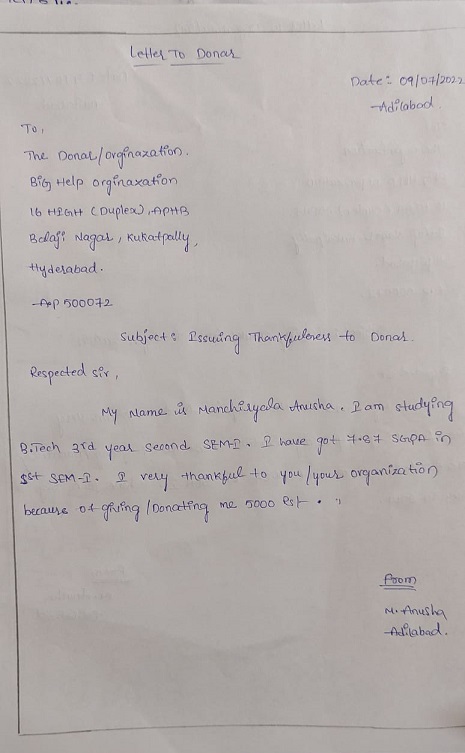 Letter To Donar
Date: 09/07/2022
Adilabad.
To,
The Donar/orginaxation.
Big Help orginaxation
16 HIGH (Duplex), APHB
Balaji Nagar, Kukatpally,
Hyderabad.
Ap 500072
Subject: Issuing Thankfuleness to Donar.
Respected sir,
My Name is Manchiryala Anusha. I am studying
B.Tech 3rd year second SEM-I. I have got 7.87 SGPA in
SEM-I. I very thankful to you/your organization
because of giving/Donating me 5000
From
M. Anusha
Adilabad.